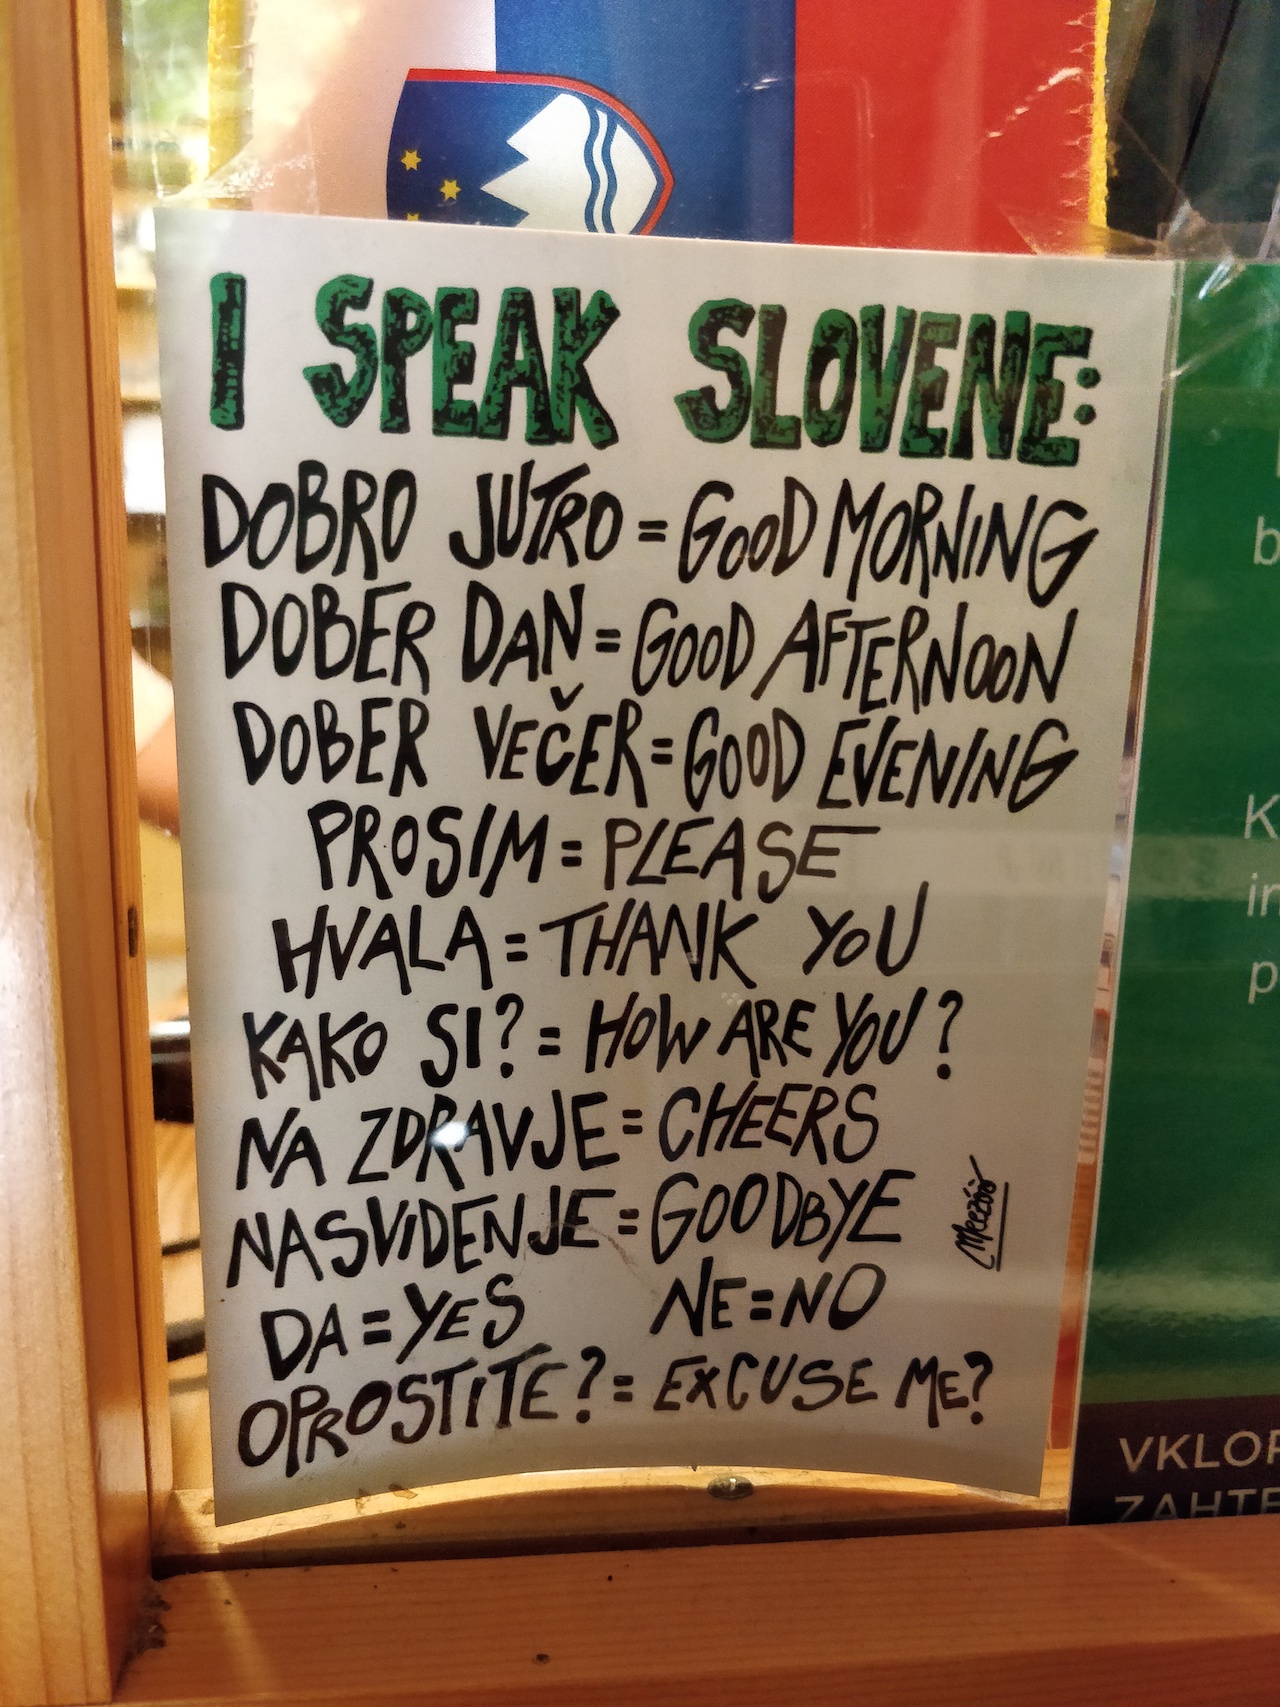 I SPEAK SLOVENE:
DOBRO JUTRO = GOOD MORNING
DOBER DAN = GOOD AFTERNOON
DOBER VEČER = GOOD EVENING
PROSIM = PLEASE
HVALA = THANK YOU
KAKO SI? = HOW ARE YOU?
NA ZDRAVJE = CHEERS
NASVIDENJE = GOODBYE
DA = YES NE = NO
OPROSTITE? = EXCUSE ME?